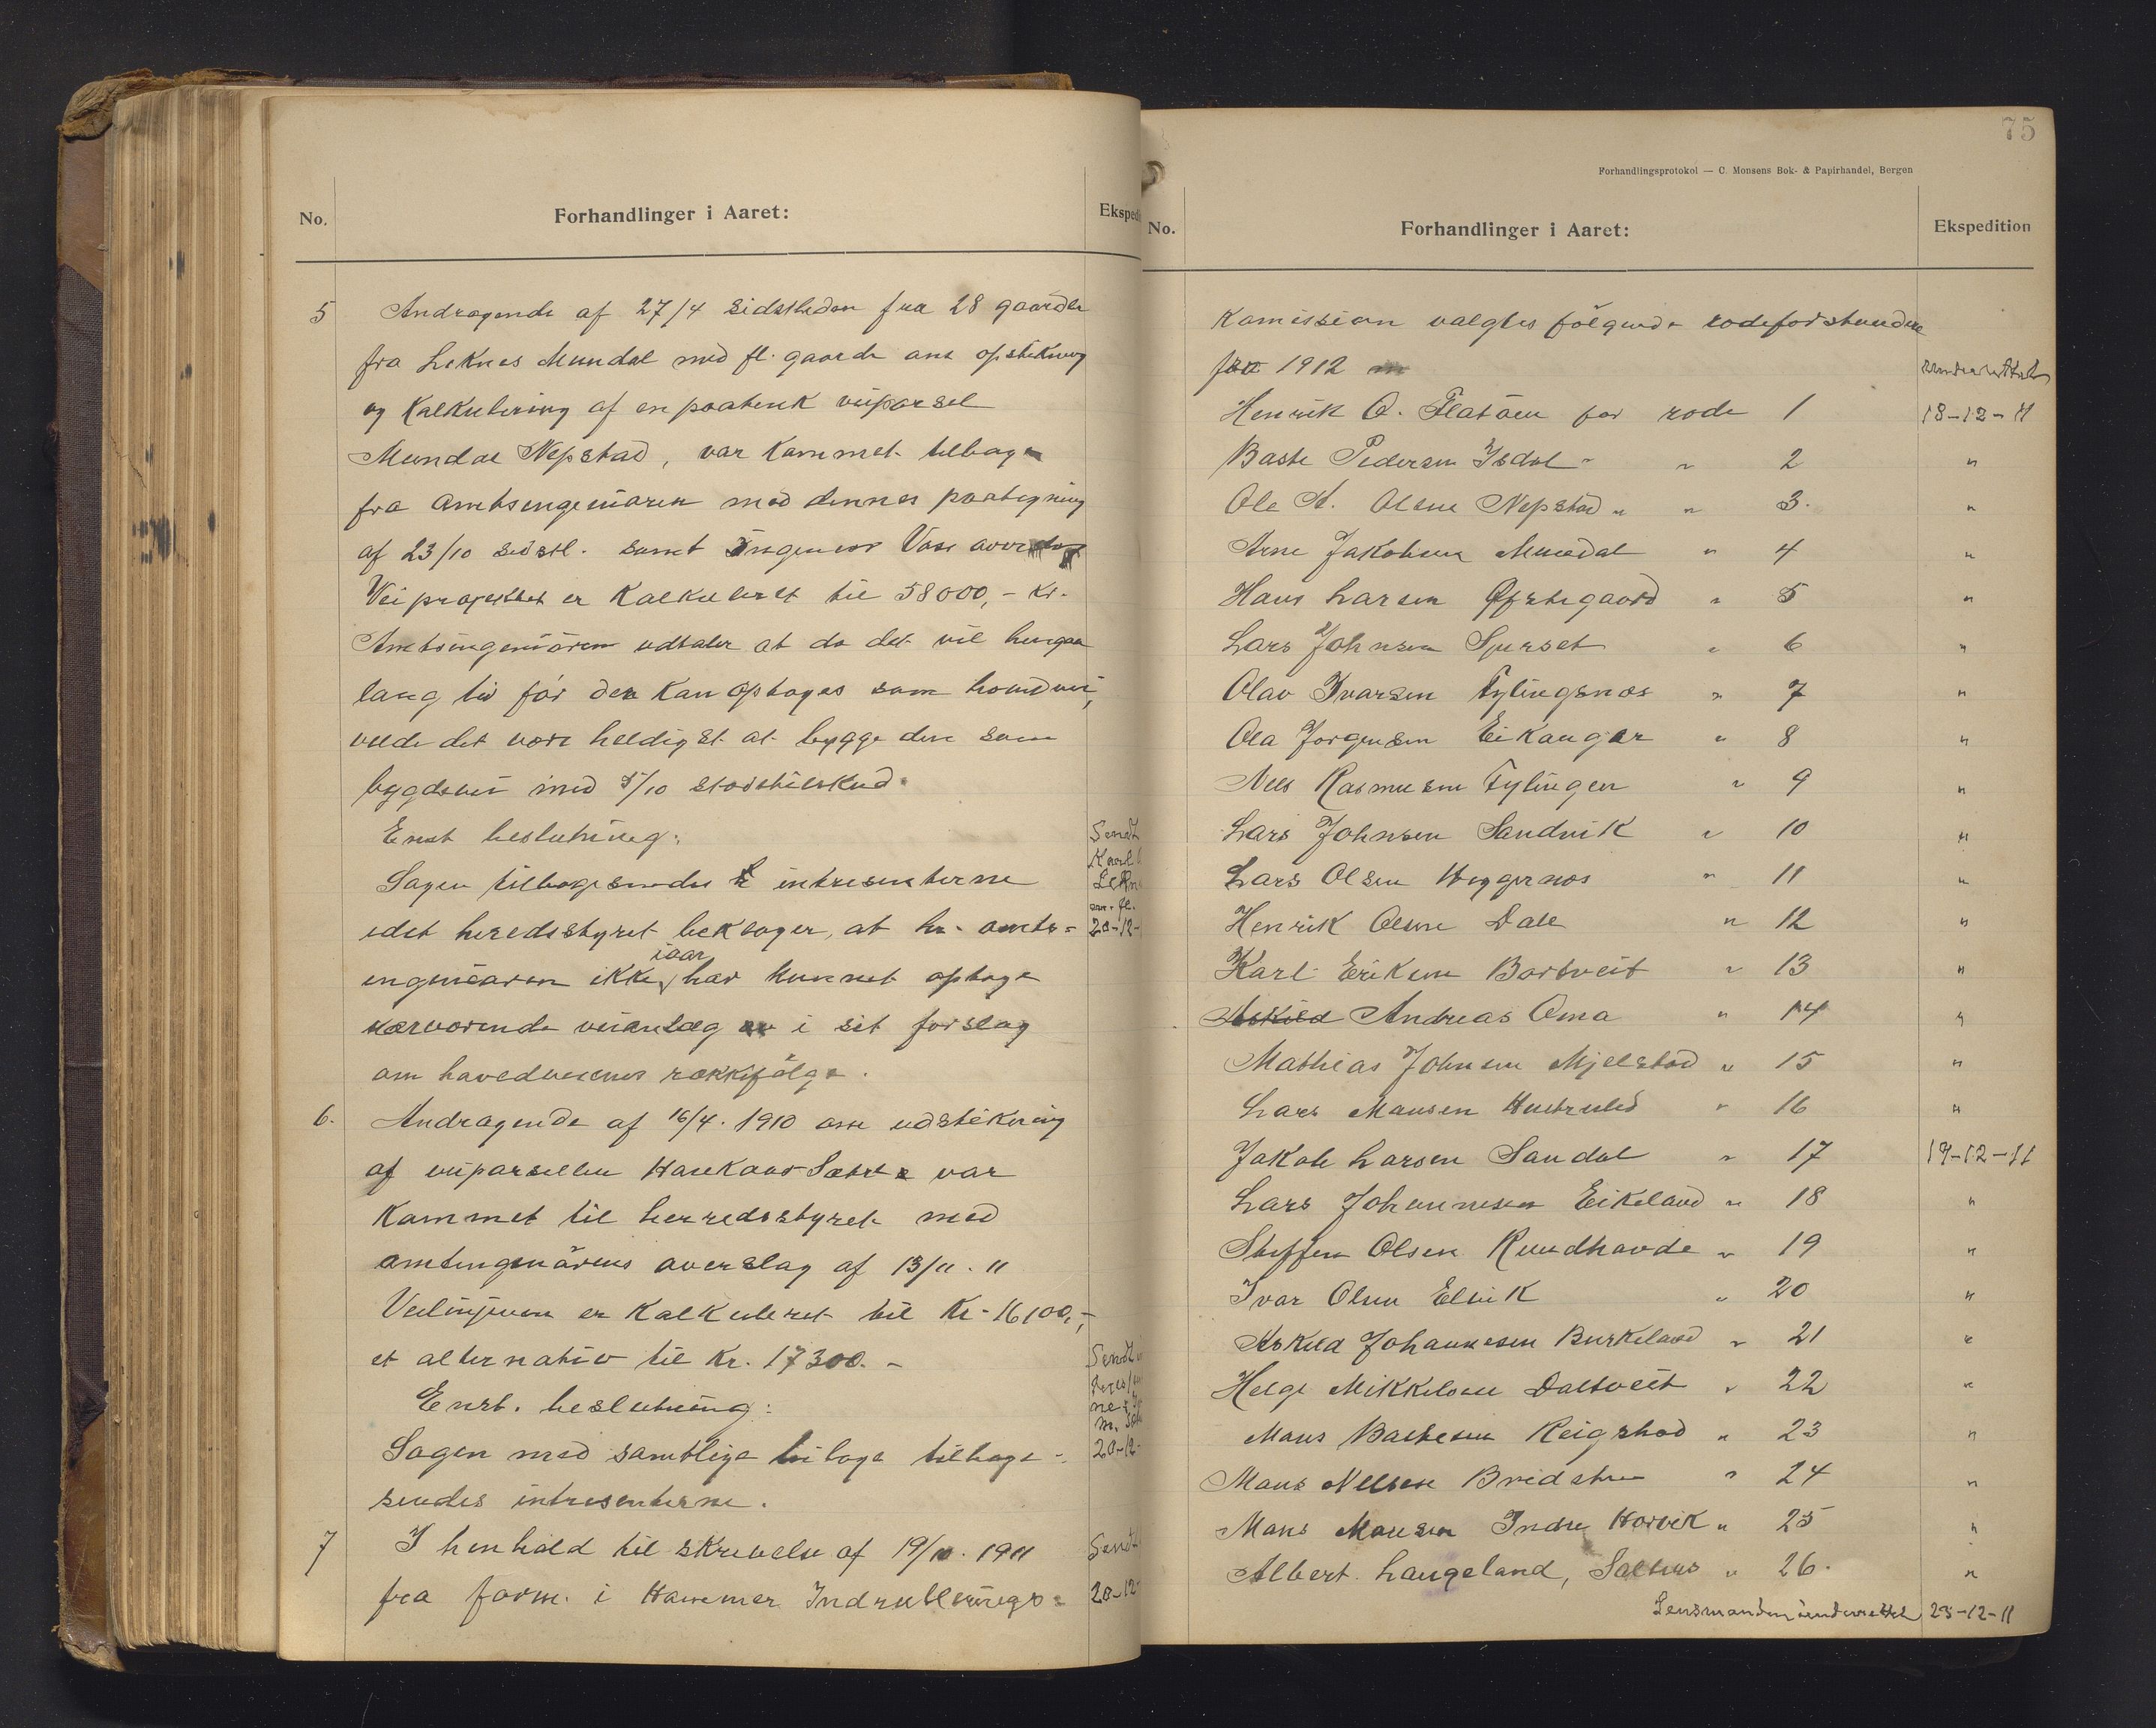 No.
Forhandlinger i Aaret:
5 Andragende af 27/4 sidstleden fra 28 gaarde
fra Leknes Mundal med fl. gaarde ans opstikning
og Kalkulering af en paatenk veiparsel
Mundal Nepstad, var Kommet tilbage
fra amtsingeniøren med dennes paategning
af 23/10 sidstl. samt Ingeniør
Vei projektet er Kalkuleret til 58000,- Kr.
Amtsingeniøren udtaler at da det vil hengaa
lang tid før den Kan optages som hovedvei,
vilde det være heldigst at bygge den som
bygdevei med 5/10 statstilskud.
Enst beslutning:
Sagen tilbagesendes intresenterne
idet heredsstyret beklager, at hr. amts=
iaar
ingeniøren ikke har kunnet optage
nærværende veianlæg i sit forslag
om hovedveienes rækkefølge.
6. Andragende af 16/4. 1910 om udstikning
af veiparsellen Haukaas Sætre var
Kommet til herredsstyret med
amtingeniørens overslag af 13/11. 11
Veilinjeven er Kalkuleret til Kr. 16100,-,
et alternativ til Kr. 17300.-
Enst. beslutning:
Sagen med samtlige bilage tilbage-
sendes intresenterne.
7 I henhold til skrivelse af 19/10. 1911
fra form. i Hammer Indrulerings=
Ekspedi
Sendt
Karl
Lekn
m. fl.
20-12-
Sendt
20-12-
Sendt
20-12-
75
Forhandlingsprotokol — C. Monsens Bok- & Papirhandel, Bergen
No.
Forhandlinger i Aaret:
Ekspedition
Komission valgtes følgende rodeforstandere
for 1912 underrettet
Henrik O. Flatøen for rode 1 18-12-11
Baste Pedersen Isdal " " 2 "
Ole A. Olsen Nepstad " " 3. "
Arne Jakobsen Mundal " 4 "
Hans Larsen Øfstegaard " 5 "
Lars Johnsen Spurset " 6 "
Olav Ivarsen Fylingsnes " 7 "
Ola Jørgensen Eikanger " 8 "
Nils Rasmusen Fylingen " 9 "
Lars Johnsen Sandvik " 10 "
Lars Olsen Heggernes " 11 "
Henrik Olsen Dale " 12 "
Karl Eriksen Bortveit " 13 "
Askild Andreas Oma " 14 "
Mathias Johnsen Mjelstad " 15 "
Lars Monsen Hustruled " 16 "
Jakob Larsen Sandal " 17 19-12-11
Lars Johannesen Eikeland " 18 "
Steffen Olsen Rundhovde " 19 "
Ivar Olsen Elvik " 20 "
Askild Johannesen Birkeland " 21 "
Helge Mikkelsen Daltveit " 22 "
Mons Bastesen Reigstad " 23 "
Mons Nilsen Bredstuen " 24 "
Mons Monsen Indre Horvik " 25 "
Albert Langeland, Salhus " 26. "
Lensmanden underrettet 23-12-11